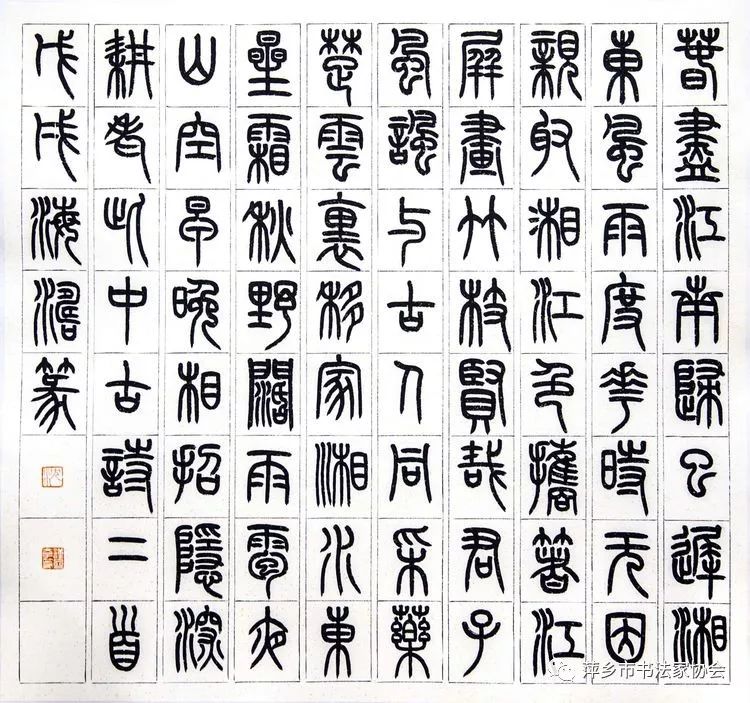 春盡江南歸已遲湘
東風雨度花時无因
親取湘江色攜著江
屏畫竹枝賢哉君子
風諷与古人同采藥
楚雲裏移家湘水東
星霜秋野闊雨雹夜
山空早晚相招隱深
耕老此中古詩二首
戊戌海澹篆
萍乡市书法家协会